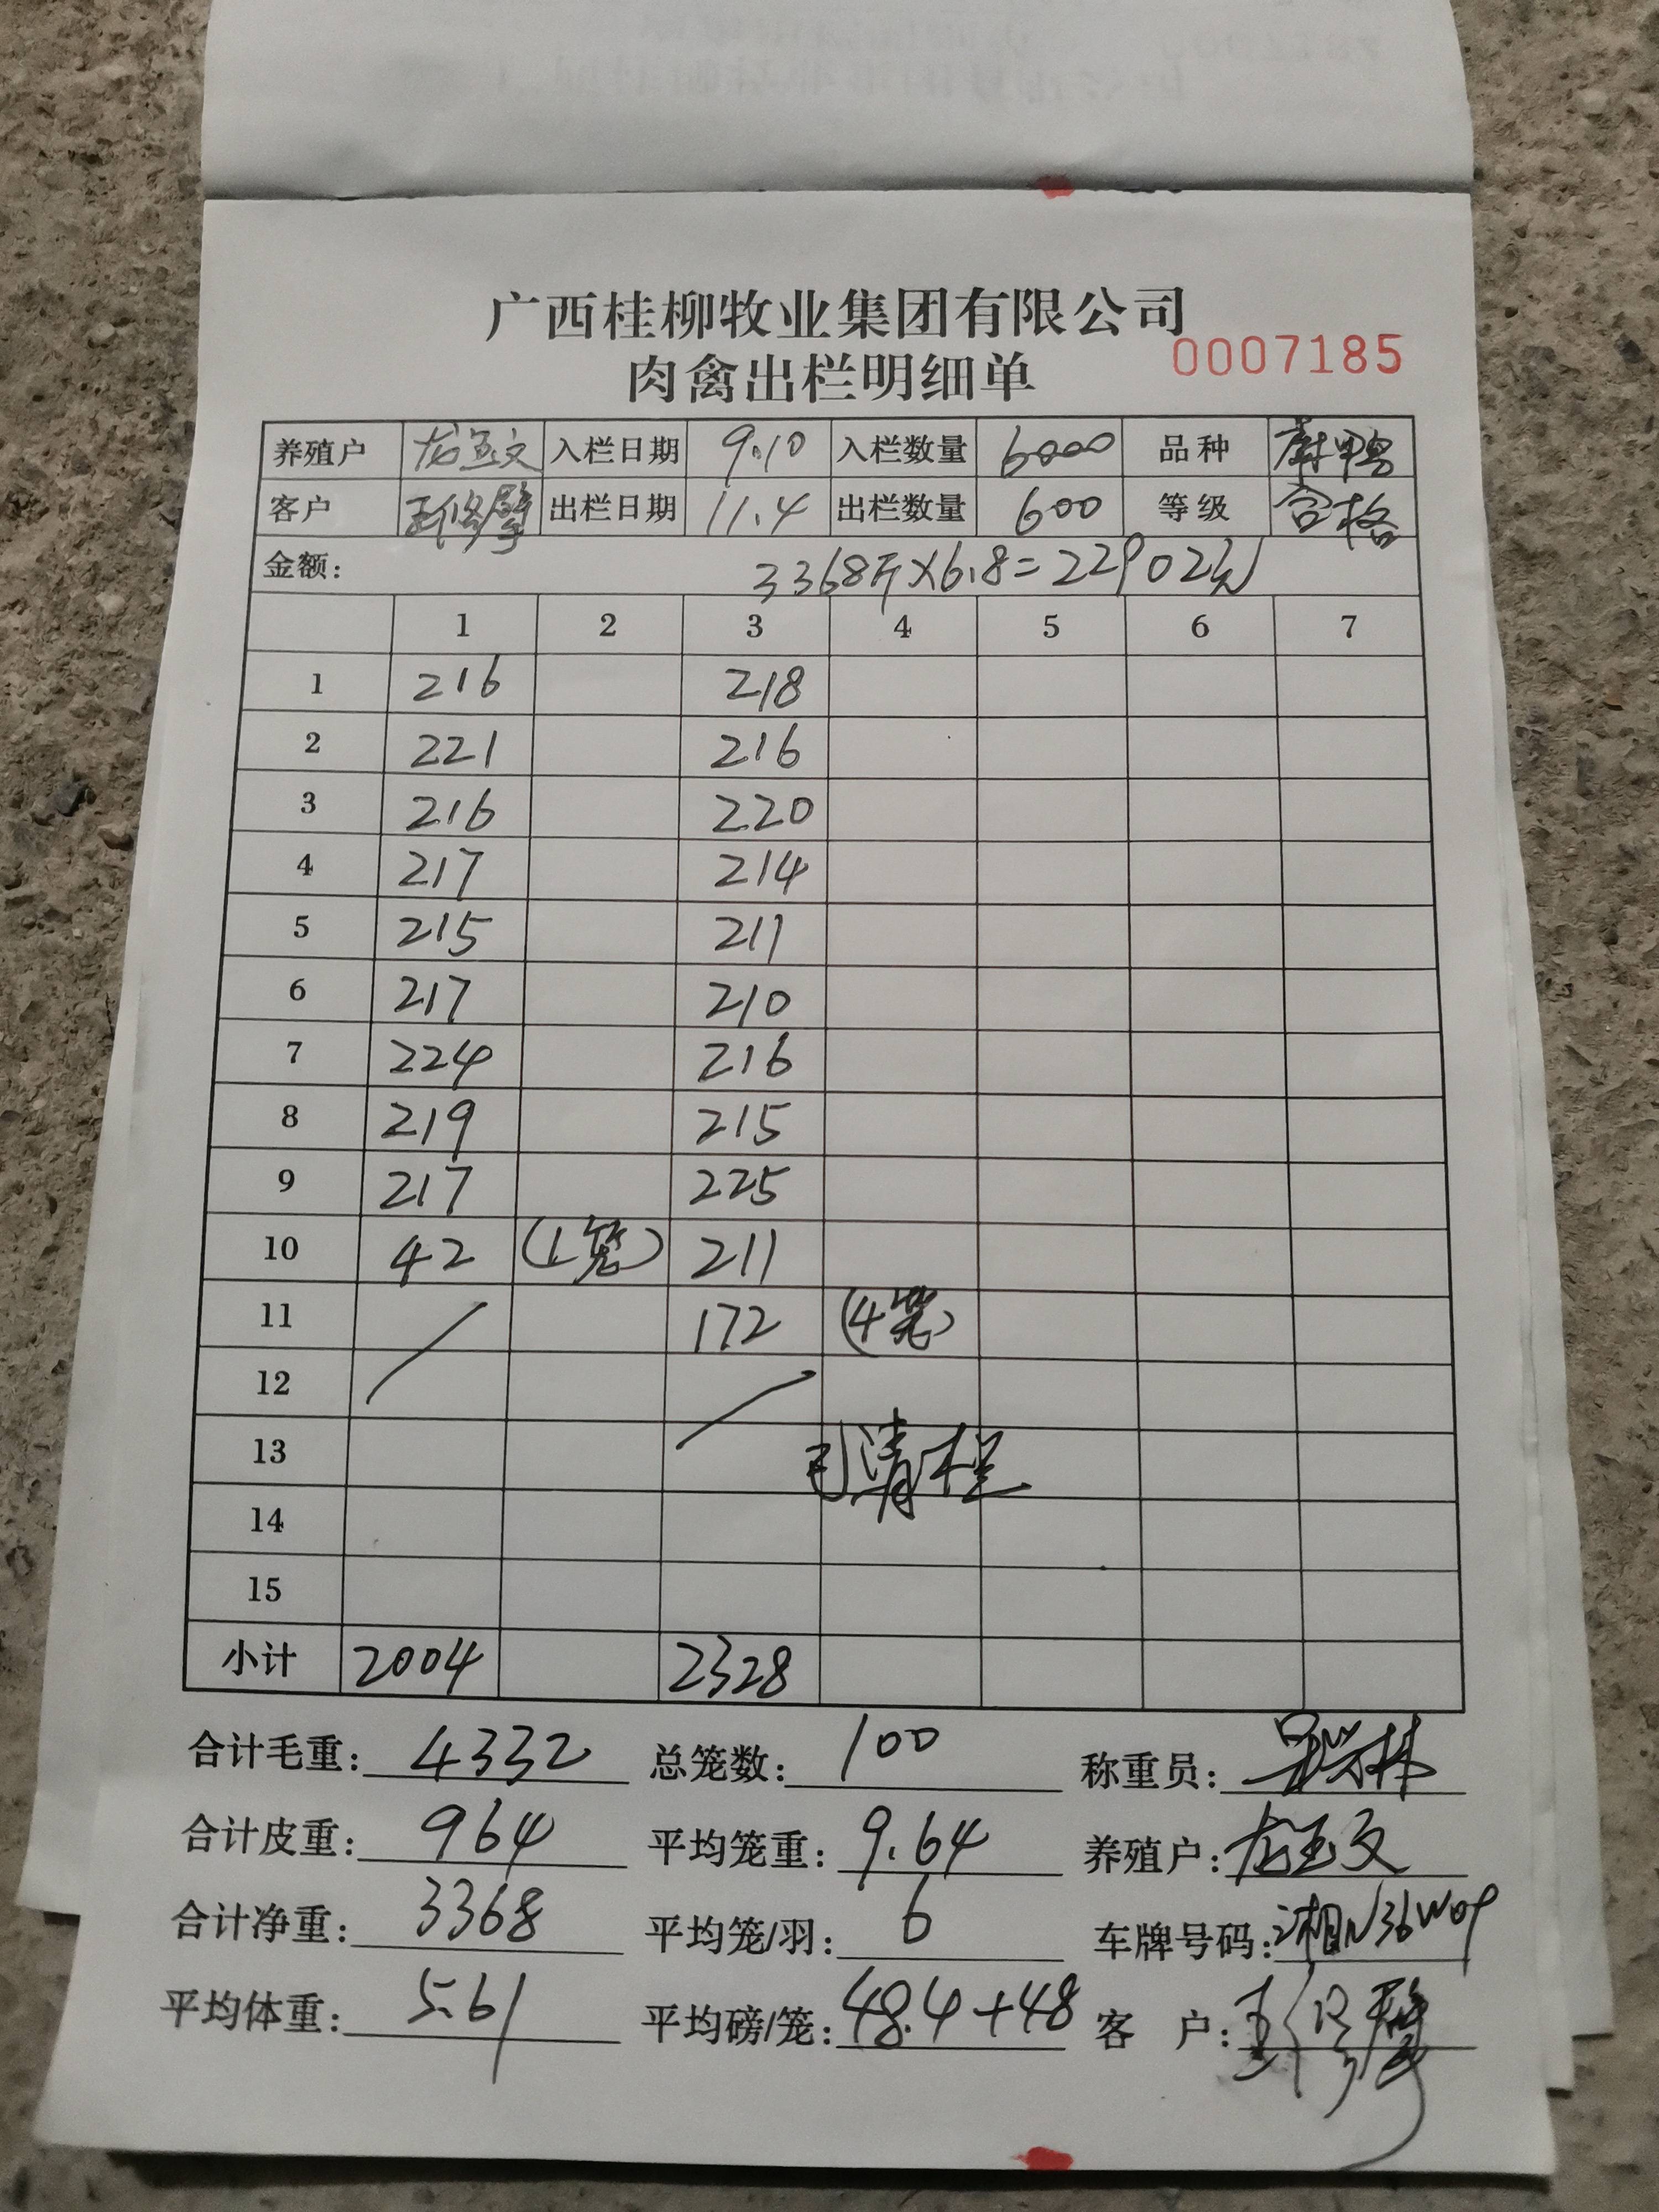 广西桂柳牧业集团有限公司
肉禽出栏明细单 0007185
养殖户 龙玉文 入栏日期 9.10 入栏数量 6000 品种 麻鸭
客户 出栏日期 11.4 出栏数量 600 等级 合格
金额: 3368斤×6.8=22902元
1 2 3 4 5 6 7
1 216 218
2 221 216
3 216 220
4 217 214
5 215 211
6 217 210
7 224 216
8 219 215
9 217 225
10 42 (1笼) 211
11 172 (4笼)
12
13 已清栏
14
15
小计 2004 2328
合计毛重: 4332 总笼数: 100 称重员:
合计皮重: 964 平均笼重: 9.64 养殖户: 龙玉文
合计净重: 3368 平均笼/羽: 6 车牌号码:
平均体重: 5.61 平均磅/笼: 48.4+48 客户: